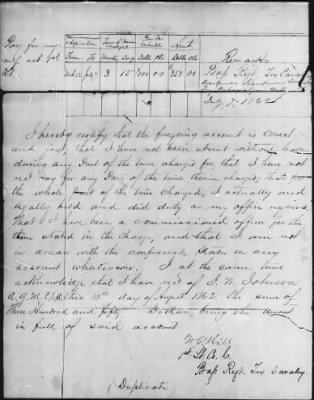 Pay for my
self
From To Months Days Dolls Cts Dolls Cts
3 15 100 00 $350 00
Remarks
Bass Regt. Tex Caval
July 7. 1862
I hereby certify that the foregoing account is correct
and just, that I have not been absent without leave
during any Part of the time charged for, that I have not
rec'd Pay for any Day of the time therein charged, that for
the whole of the time charged, I actually and
legally held and did duty as my office requires
That I have been a commissioned officer for the
time stated in the Charge, and that I am not
in arrears with the confederate States on any
account whatsoever. I at the same time
acknowledge that I have rec'd of J. W. Johnson
A.Q.M. C.S.A. this 18th day of August 1862, the sum of
Three Hundred and fifty Dollars, being the amount
in full of said account
W. C. Hill
1st Lt. Co. C.
Bass Regt. Tex Cavalry
(Duplicate)